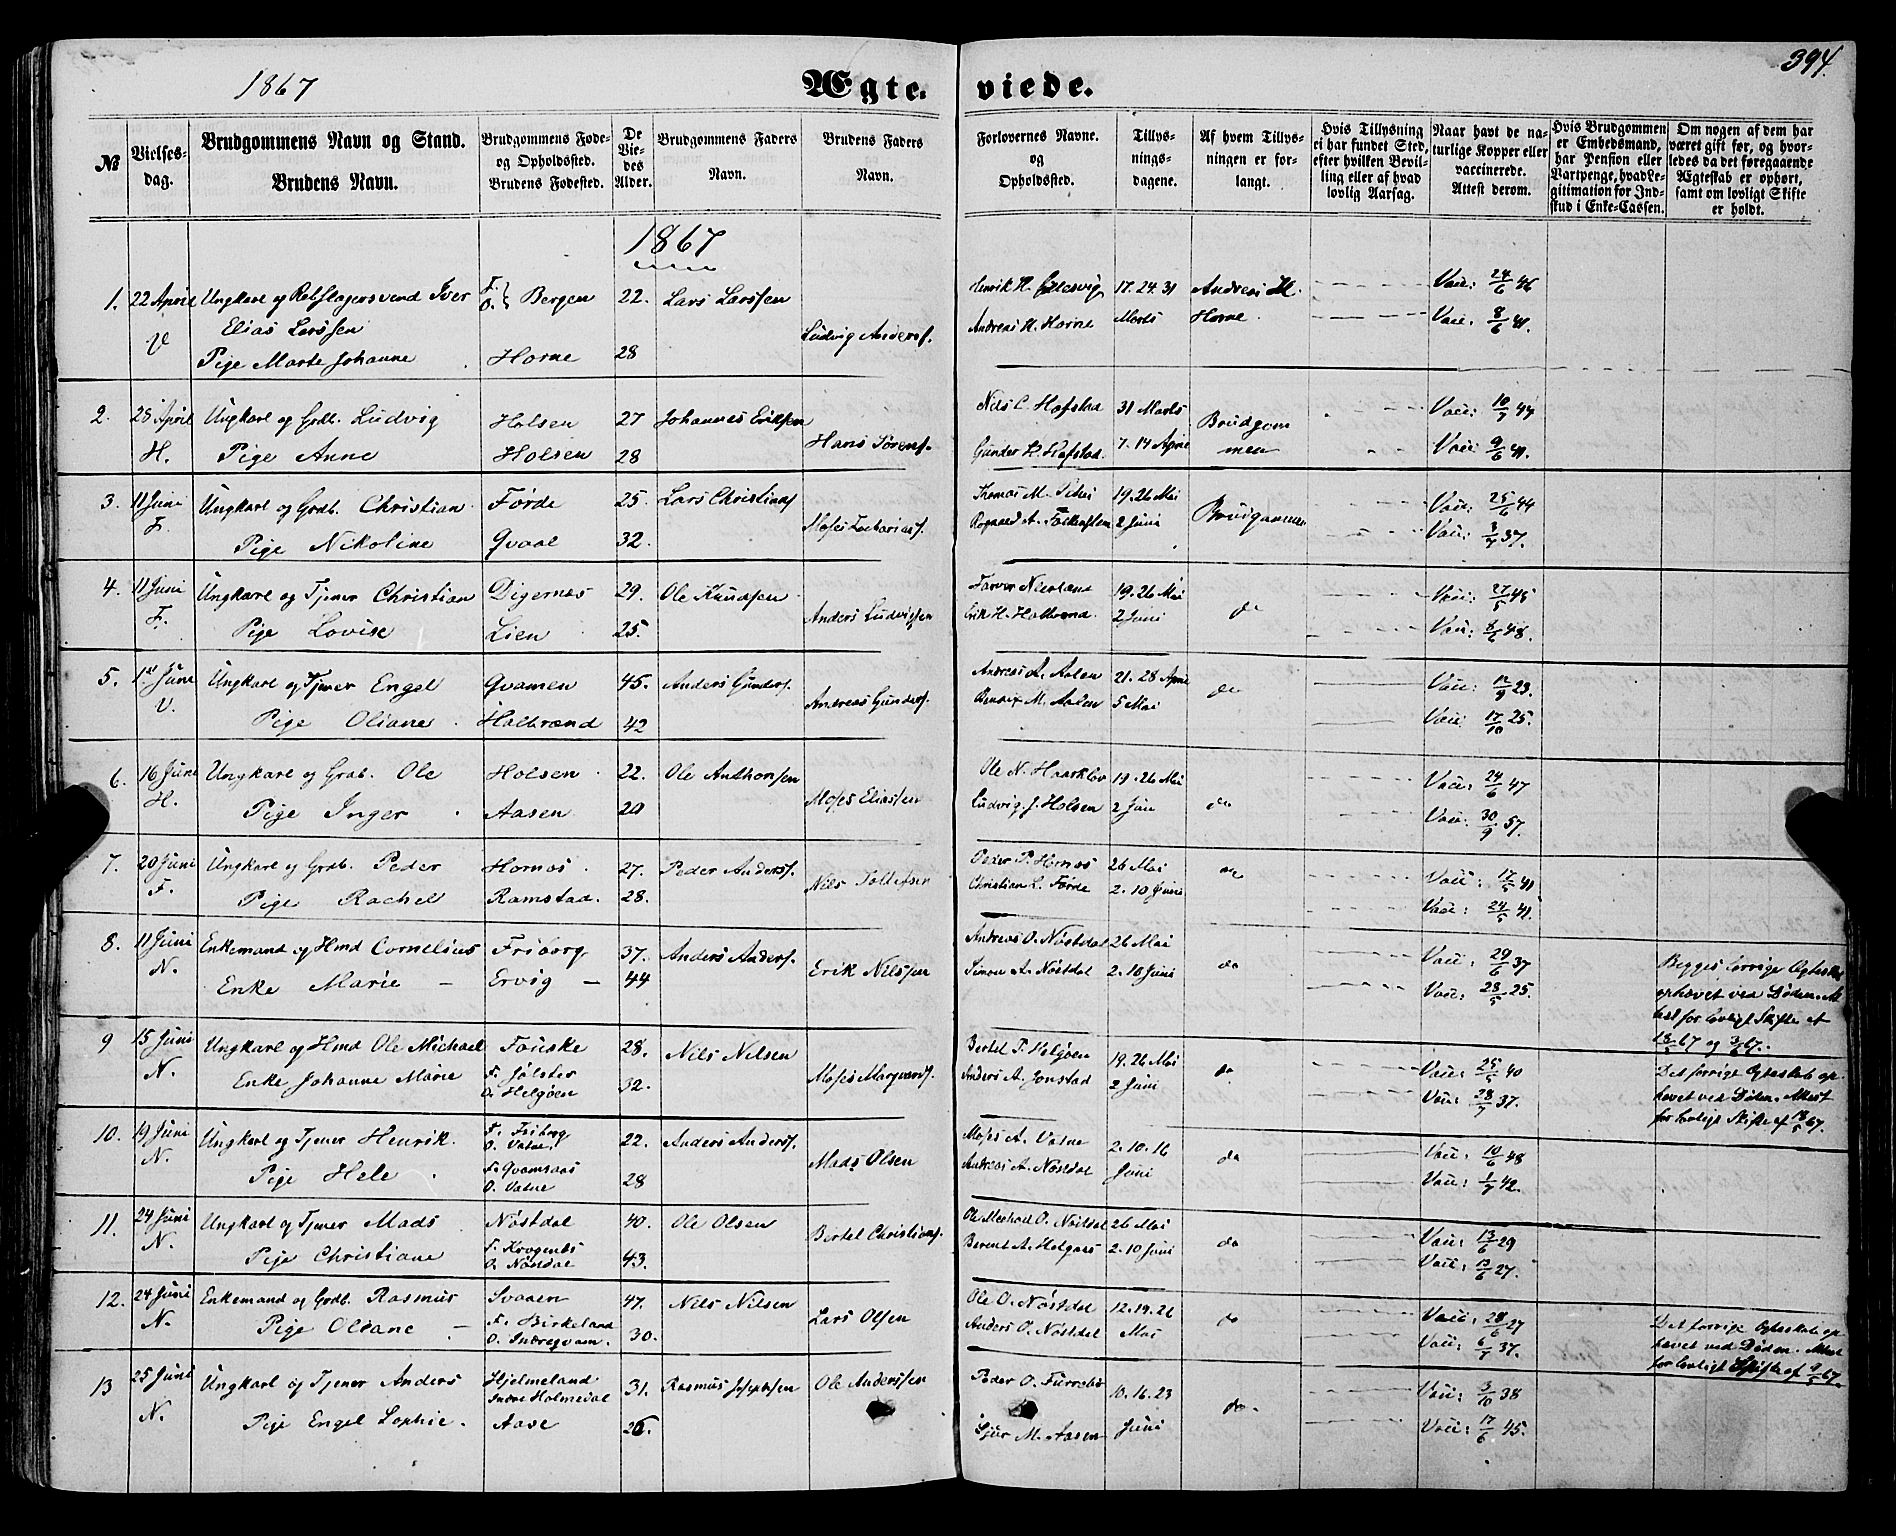 394.
1867
Ægte- viede.
№
Vielses-
dag.
Brudgommens Navn og Stand.
Brudens Navn.
Brudgommens Føde-
og Opholdssted.
Brudens Fødested.
De
Vie-
des
Alder.
Brudgommens Faders
Navn.
Brudens Faders
Navn.
Forlovernes Navne.
og
Opholdssted.
Tillys-
nings-
dagene.
Af hvem Tillys-
ningen er for-
langt.
Hvis Tillysning
ei har fundet Sted,
efter hvilken Bevil-
ling eller af hvad
lovlig Aarsag.
Naar havt de na-
turlige Kopper eller
vaccinerede.
Attest derom.
Hvis Brudgommen
er Embedsmand,
har Pension eller
Vartpenge, hvad Le-
gitimation for Ind-
skud i Enke-Cassen.
Om nogen af dem har
været gift før, og hvor-
ledes da det foregaaende
Ægteskab er ophørt,
samt om lovligt Skifte
er holdt.
1867
1. 22 April Ungkarl og Rebslagersvend Iver F. O. } Bergen 22. Lars Larssen 17. 24. 31 Andreas H. Vacc: 24/6 46
V Elias Larssen Ludvig Anders. Andreas H. Horne Marts Horne Vacc: 8/6 41.
Pige Marte Johanne Horne 28
2. 28 April Ungkarl og Grdb. Ludvig Holsen 27 Johannes Eriksen Nils C. Hafstad 31 Marts Brudgom Vacc: 10/7 44
H. Pige Anne Holsen 28 Hans Sørens. Gunder H. Hafstad 7. 14 April men Vacc: 9/6 41.
3. 11 Juni Ungkarl og Grdb. Christian Førde 25. Lars Christians. Thomas M. 19. 26 Mai Brudgommen Vacc: 25/6 44
F. Pige Nikoline Qvaal 32. Moses Zachariass. 2 Juni Vacc: 3/7 37.
4. 11 Juni Ungkarl og Tjener Christian Digernæs 29. Ole Knudsen 19. 26 Mai do Vacc: 27/5 45
F. Pige Lovise Lien 25. Anders Ludvigsen Erik H. Halbrend 2 Juni Vacc: 8/6 48.
5. 1st Juni Ungkarl og Tjener Engel Qvamen 45. Anders Gunders. Andreas A. Aalen 21. 28 April do Vacc: 12/9 23.
V. Pige Oliane Halbrænd 42 Andreas Gunders. M. Aalen 5 Mai Vacc: 17/10 25.
6. 16 Juni Ungkarl og Grdb. Ole Holsen 22. Ole Anthonsen Ole N. Haarklov 19. 26 Mai do Vacc: 24/6 47
H. Pige Inger Aasen 20 Moses Eliassen Ludvig J. Holsen 2 Juni Vacc: 30/9 57.
7. 20 Juni Ungkarl og Grdb. Peder Hornæs 27. Peder Anders. Peder P. Hornæs 26 Mai do Vacc: 17/5 41
F. Pige Rachel Ramstad. 28. Nils Tollefsen Christian L. Førde 2. 10 Juni Vacc: 24/5 41.
8. 11 Juni Enkemand og Hmd Cornelius Friborg 37. Anders Anders. Andreas O. Nøstdal 26 Mai do Vacc: 29/6 37 Begges forrige Egteskab
N. Enke Marie – Ervig – 44 Erik Nilssen Simon A. Nøstdal 2. 10 Juni Vacc: 28/5 25. ophævet ved Døden. At-
test for lovligt Skifte af
67 og 67.
9 15 Juni Ungkarl og Hmd Ole Michael Fauske 28. Nils Nilsen Bertel P. Helgøen 19. 26 Mai do Vacc: 25/5 40 Det forrige Egteskab op-
N. Enke Johanne Marie F. Jølster O. Helgøen 32. Moses Margvards. Anders A. Jonstad 2 Juni Vacc: 28/7 37. hævet ved Døden. Attest
for lovligt Skifte af 67.
10. 14 Juni Ungkarl og Tjener Henrik. F. Friborg O. Vatne. 22. Anders Anders. Moses A. Vatne 2. 10. 16 do Vacc: 10/6 48
N. Pige Hele F. Qvamsaas O. Vatne 28 Mads Olsen Andreas A. Nøstdal Juni Vacc: 1/7 42.
11. 24 Juni Ungkarl og Tjener Mads Nøstdal 40. Ole Olsen Ole Michael O. Nøstdal 26 Mai do Vacc: 13/6 29
N. Pige Christiane F. O. Nøstdal 43. Bertel Christians. Berent A. Helgaas 2. 10 Juni Vacc: 13/6 27.
12. 24 Juni Enkemand og Grdb. Rasmus Svaaen 47. Nils Nilsen Ole O. Nøstdal 12. 19. 26 do Vacc: 28/6 27 Det forrige Egteskab op-
N. Pige Oliane – F. Birkeland O. Indregvam. 30. Lars Olsen Anders O. Nøstdal Mai Vacc: 6/7 37. hævet ved Døden. Attest
for lovligt Skifte af 67.
13 25 Juni Ungkarl og Tjener Anders Hjelmeland Indre Holmedal 31. Rasmus Josephsen Ole Anderssen Peder O. Furrebø 10. 16. 23 do. Vacc: 3/10 38
N. Pige Engel Sophie. Aase 26. Sjur M. Aasen Juni Vacc: 17/6 45.